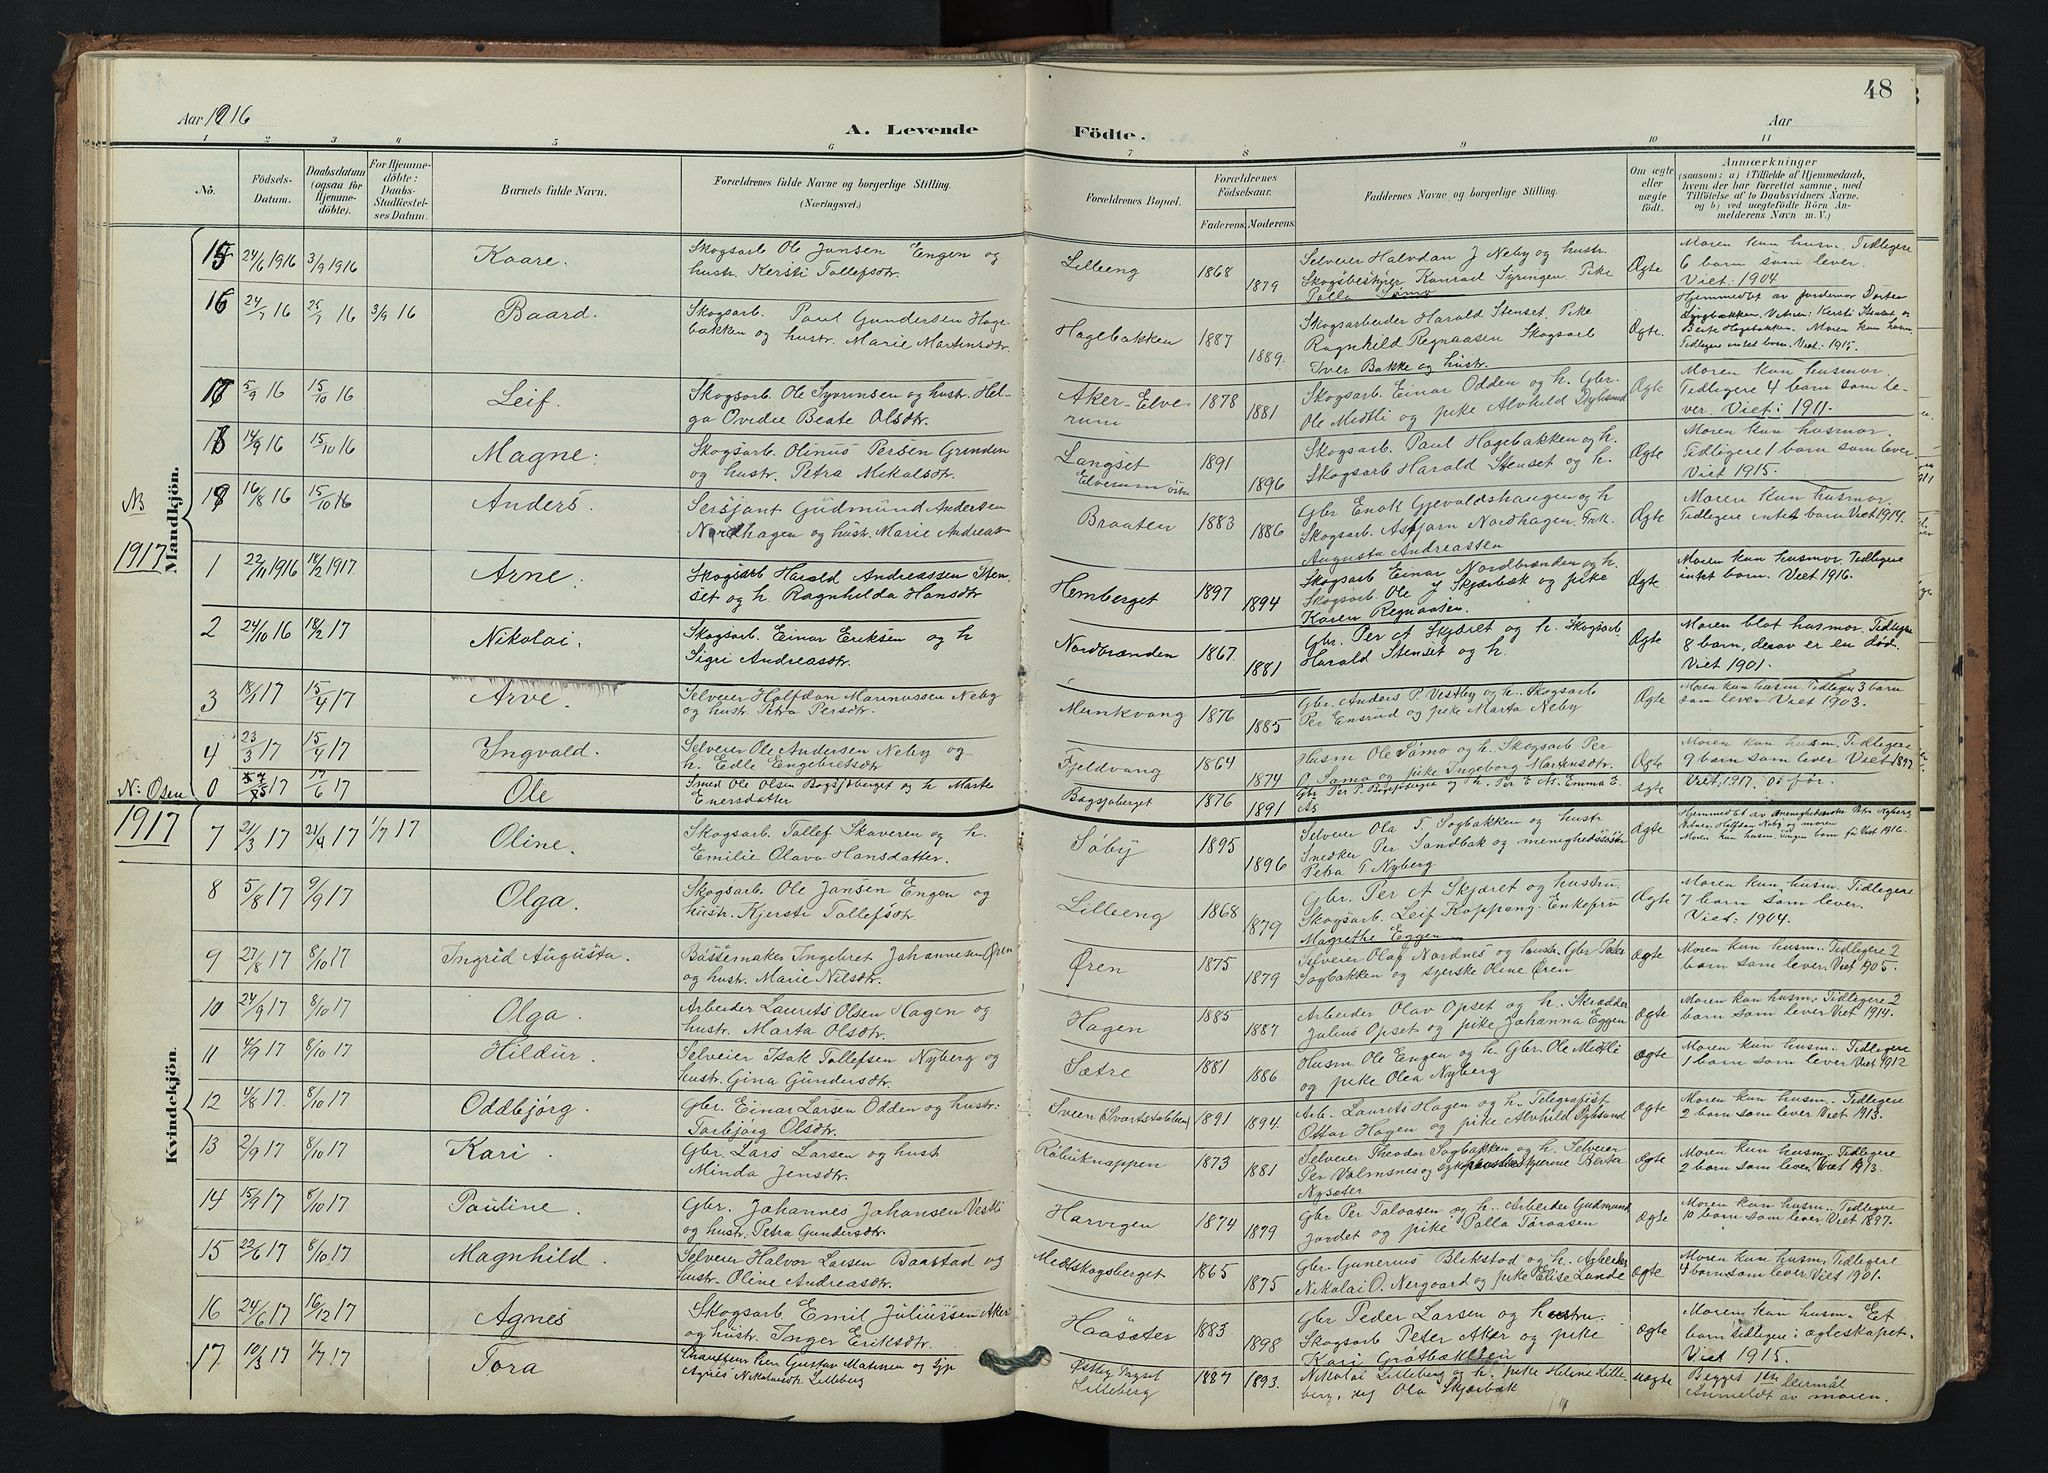 48
Aar 1916
A. Levende
Födte.
Aar
1 2 3 4 5 6 7 8 9 10 11
No.
Födsels-Datum.
Daabsdatum (ogsaa for Hjemme-döbte).
For Hjemme-döbte: Daabs-Stadfæstel-ses Datum.
Barnets fulde Navn.
Forældrenes fulde Navne og borgerlige Stilling. (Næringsvei.)
Forældrenes Bopæl.
Forældrenes Födselsaar.
Faderens. Moderens.
Faddernes Navne og borgerlige Stilling.
Om ægte eller uægte födt.
Anmærkninger
(saasom: a) i Tilfælde af Hjemmedaab, hvem der har forrettet samme, med Tilföielse af to Daabsvidners Navne, og b) ved uægtefödte Börn An-melderens Navn m. V.)
Mandkjön.
15 24/6 1916 3/9 1916 Kaare. Skogsarb. Ole Jansen Engen og Lilleeng 1868 Selveier Halvdan J Neby og hustr. Ægte Moren kun husm. Tidligere
hustr. Kersti Tollefsdtr. 1879 Skogsbestyrer Konrad Syringen Pike 6 barn som lever.
Palla Sømo Viet: 1904
16 24/7 16 25/7 16 3/9 16 Baard. Skogsarb. Paul Gundersen Hage- Hagebakken 1887 Skogsarbeider Harald Stenset. Pike Ægte Hjemmedbt av jordemor Dortea
bakken og hustr. Marie Martinsdtr. 1889. Ragnhild Regnaasen Skogsarb Vitner: Kersti Stenset og
Iver Bakke og hustr. Berte Hagebakken. Moren kun husm.
Tidligere intet barn. Viet: 1915.
17 5/9 16 15/10 16 Leif. Skogsarb. Ole Syvrinsen og hustr. Hel- Aker-Elve- 1878 Skogsarb. Einar Odden og h. Gbr. Ægte Moren kun husmor.
ga Ovidie Beate Olsdtr. rum 1881 Ole Midtli og pike Alvhild Tidligere 4 barn som le-
ver. Viet: 1911.
18 14/9 16 15/10 16 Magne. Skogsarb. Olinus Persen Grinden Langset 1891 Skogsarb. Paul Hagebakken og h. Ægte Moren kun husmor.
og hustr. Petra Mikalsdtr. Elverum østre 1896 Skogsarb Harald Stenset og h. Tidligere 1 barn som lever
Viet 1915.
19 16/8 16 15/10 16 Anders. Sersjant Gudmund Andersen Braaten 1883 Gbr Enok Gjevaldshaugen og h Ægte Moren kun husmor.
Nordhagen og hustr. Marie Andreas- 1886 Skogsarb. Asbjørn Nordhagen. Frk. Tidligere intet barn Viet 1914.
Augusta Andreassen
NB
1917
1 22/11 1916 18/2 1917. Arne. Skogsarb Harald Andreassen Sten- Hemberget 1897 Skogsarb Einar Nordbrænden og h. Ægte Moren kun husmor. Tidligere
set og h. Ragnhilda Hansdtr 1894 Skogsarb. Ole J Skjærbæk og pike intet barn. Viet 1916.
Karen Regnaasen.
2 24/10 16 18/2 17 Nikolai. Skogsarb. Einar Eriksen og h Nordbrænden 1867. Gbr. Per A Skjæret og h. Skogsarb. Ægte Moren blot husmor. Tidligere
Sigri Andreasdtr. 1881 Harald Stenset og h. 8 barn, derav er en død.
Viet 1901.
3 18/1 17 15/4 17 Arve. Selveier Halfdan Marinussen Neby Munkvang 1876 Gbr. Anders P. Vestby og h. Skogsarb Ægte Moren kun husm. Tidligere 3 barn
og hustr. Petra Persdtr. 1885 Per Ensrud og pike Marta Neby som lever Viet 1903.
4 23/3 17 15/4 17 Ingvald. Selveier Ole Andersen Neby og Fjeldvang 1864 Husm Ole Sømo og h. Skogsarb Per Ægte Moren kun husm. Tidligere
h. Edle Engebretsdtr 1874 O. Sømo og pike Ingeborg Martensdtr. 9 barn som lever Viet 1897.
N: Osen
0 17 17/6 17 Ole Smed Ole Olsen Bagsjøberget og h Marte Bagsjøberget 1876 Gbr Per P. Bagsjøberget og h. Per E As. Emma E. ægte Viet 1917.
Enersdatter 1891 As
1917
Kvindekjön.
7 21/3 17 21/4 17 1/7 17 Oline. Skogsarb. Tollef Skaveren og h. Søby 1895 Selveier Ola T. Sogbakken og hustr Ægte Hjemmedbt av menighedssøster Petra Nyberg
Emilie Olava Hansdatter. 1896 Snedker Per Sandbak og menighedssøster Vitner: Halfdan Neby og moren
Petra T Nyberg Moren kun husm. Ingen barn før Viet 1916.
8 5/8 17 9/9 17 Olga. Skogsarb. Ole Jansen Engen og Lilleeng 1868 Gbr. Per A Skjæret og hustru. Ægte Moren kun husm. Tidligere
hustr. Kjersti Tollefsdtr. 1879 Skogsarb. Leif Koppang. Enkefru 7 barn som lever.
Magrethe Eggen Viet: 1904.
9 27/8 17 8/10 17 Ingrid Augusta. Børsemaker Ingebret Johannesen Øren Øren 1875 Selveier Olaf Nordnes og hustr. Gbr Peder Ægte Moren kun husm. Tidligere 2
og hustr. Marie Nilsdtr. 1879 Sogbakken og syerske Oline Øren barn som lever. Viet 1905.
10 24/9 17 8/10 17 Olga. Arbeider Laurits Olsen Hagen og Hagen 1885 Arbeider Olav Opset og h. Skrædder ægte Moren kun husm. Tidligere 2
hustr. Marta Olsdtr. 1887 Julius Opset og pike Johanna Eggen barn som lever Viet 1914.
11 4/9 17 8/10 17 Hildur. Selveier Isak Tollefsen Nyberg og Sætre 1881 Husm. Ole Engen og h. Gbr. Ole Midtli ægte Moren kun husm. Tidligere
hustr. Gina Gundersdtr. 1886 og pike Olea Nyberg 1 barn som lever Viet 1912
12 4/8 17. 8/10 17 Oddbjørg. Gbr. Einar Larsen Odden og hustr: Sveen 1891 Arb. Laurits Hagen og h. Telegrafist ægte Moren kun husm. Tidligere
Torbjørg Olsdtr. 1894. Ottar Hagen og pike Alvhild 2 barn som lever Viet 1913.
13 2/9 17 8/10 17 Kari. Gbr. Lars Larsen og hust 1873 Selveier Theodor Sogbakken og h. Selveier Ægte Moren kun husm. Tidligere
Minda Jensdtr. 1881 Per Valmsnes og Berter 2 barn som lever. Viet 1913.
Nysæter
14 15/9 17 8/10 17 Pauline. Gbr. Johannes Johansen Vestli Harvigen 1874 Gbr Per Taloasen og h. Arbeider Gudmund Ægte Moren kun husm. Tidligere
og hustr. Petra Gundersdtr. 1879 Jordet og pike Palla Toraasen 10 barn som lever Viet 1897.
15 22/6 17 8/10 17 Magnhild. Selveier Halvor Larsen Baastad og Midtskogsberget 1865 Gbr. Gunerius Blikstad og h. Arbeider ægte Moren kun husm. Tidligere
hustr. Oline Andreasdtr. 1875 Nikolai O. Nergaard og pike Elise Lunde 4 barn som lever Viet 1901.
16 24/6 17 16/12 17 Agnes Skogsarb. Emil Juliussen Aker Haasæter 1883 Gbr Peder Larsen og hustru. ægte Moren kun husm. Et
og hustr. Inger Eriksdtr. 1898 Skogsarb Peter Aker og pike barn tidligere i ægteskapet.
Kari Grøtbækken Viet 1915.
17 10/3 17 1/7 17 Tora Chauffeur Per Gustav Madsen og pige Østby Trysil 1887 Nikolai Lilleberg og h. pike Helene Lille- uægte Begges 1ste leiermål
Agnes Nikolaidtr Lilleberg Lilleberg 1893. berg, og Ola Skjærbæk Anmeldt av moren.